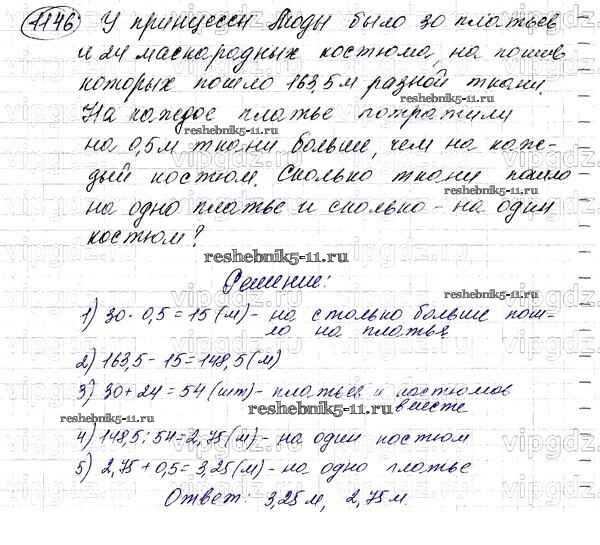 1146 У принцессы Моды было 30 платьев
и 24 маскарадных костюма, на пошив
которых пошло 163,5 м разной ткани.
На каждое платье потратили
на 0,5 м ткани больше, чем на каж-
дый костюм. Сколько ткани пошло
на одно платье и сколько - на один
костюм?
Решение:
1) 30 · 0,5 = 15 (м) - на столько больше пош-
ло на платья
2) 163,5 - 15 = 148,5 (м)
3) 30 + 24 = 54 (шт) - платьев и костюмов
вместе
4) 148,5 : 54 = 2,75 (м) - на один костюм
5) 2,75 + 0,5 = 3,25 (м) - на одно платье
Ответ: 3,25 м, 2,75 м.
reshebnik5-11.ru
reshebnik5-11.ru
reshebnik5-11.ru
reshebnik5-11.ru
reshebnik5-11.ru
reshebnik5-11.ru
reshebnik5-11.ru
vipgdz.ru